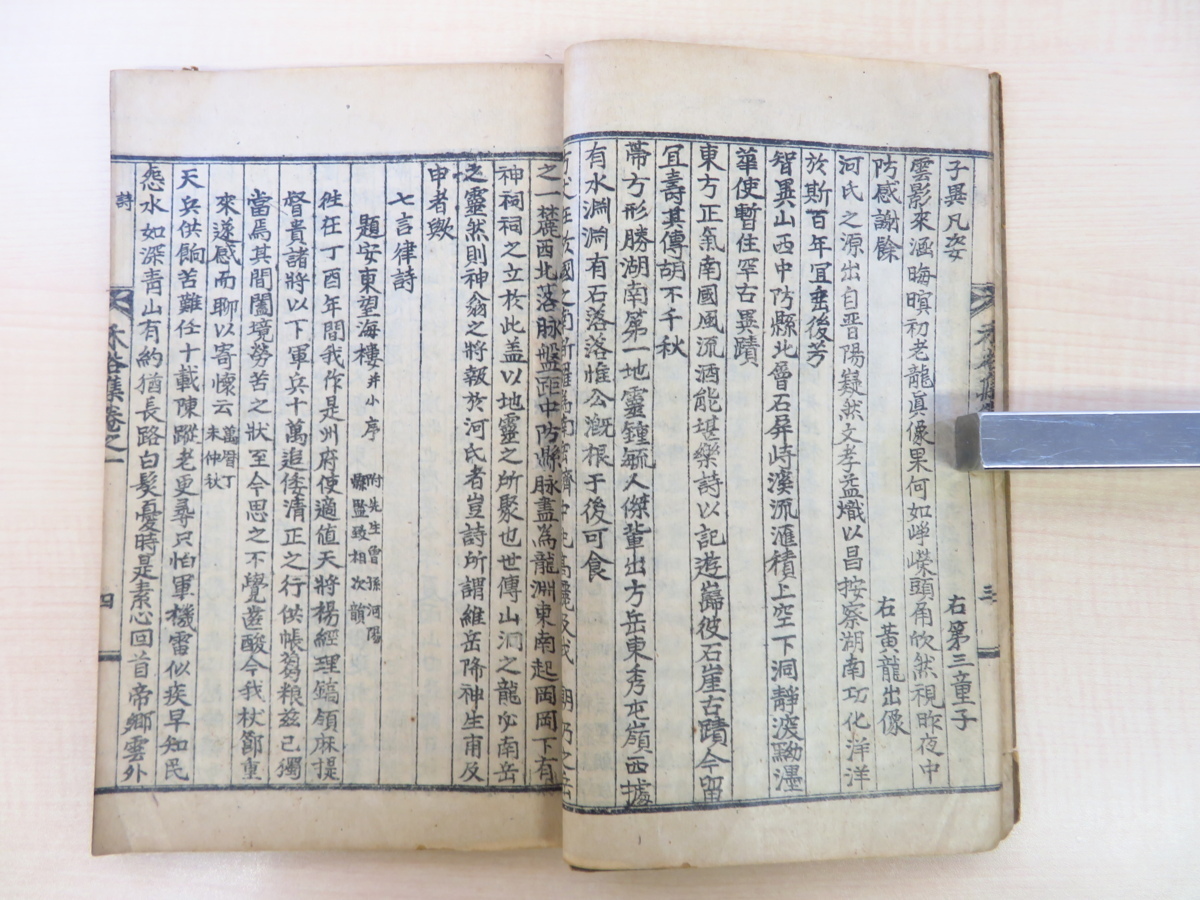 子異凡姿 右第三童子
雲影來涵晦暝初老龍眞像果何如崢嶸頭角欣然視昨夜中
防感謝餘 右黃龍出像
河氏之源出自晋陽嶷然文孝益熾以昌按察湖南功化洋洋
於斯百年宜垂後芳
智異山西中防縣北層石屛峙溪流滙積上空下洞靜波黝湮
華使暫住罕古異蹟
東方正氣南國風流酒能堪樂詩以記遊巋彼石崖古蹟今留
宜壽其傳胡不千秋
帶方形勝湖南第一地靈鍾毓人傑輩出方岳東秀屯嶺西據
有水淵淵有石落落惟公漑根于後可食
之一麓西北落脉盤距中防縣脉盡爲龍淵東南起岡岡下有
神祠祠之立於此盖以地靈之所聚也世傳山洞之龍必南岳
之靈然則神翁之將報於河氏者豈詩所謂維岳降神生甫及
申者歟
七言律詩
題安東望海樓 并小序 附先生曾孫河陽縣監致相次韻
徃在丁酉年間我作是州府使適値天將楊經理鎬領麻提
督貴諸將以下軍兵十萬追倭清正之行供帳芻粮玆己獨
當焉其間闔境勞苦之狀至今思之不覺遼酸今我杖鄭重
來遂感而聊以寄懷云 萬曆丁未仲秋
天兵供餉苦難任十載陳蹤老更尋只怕軍機雷似疾早知民
怨水如深靑山有約猶長路白髮憂時是素心回首帝鄉雲外
詩
集卷之一
四
三